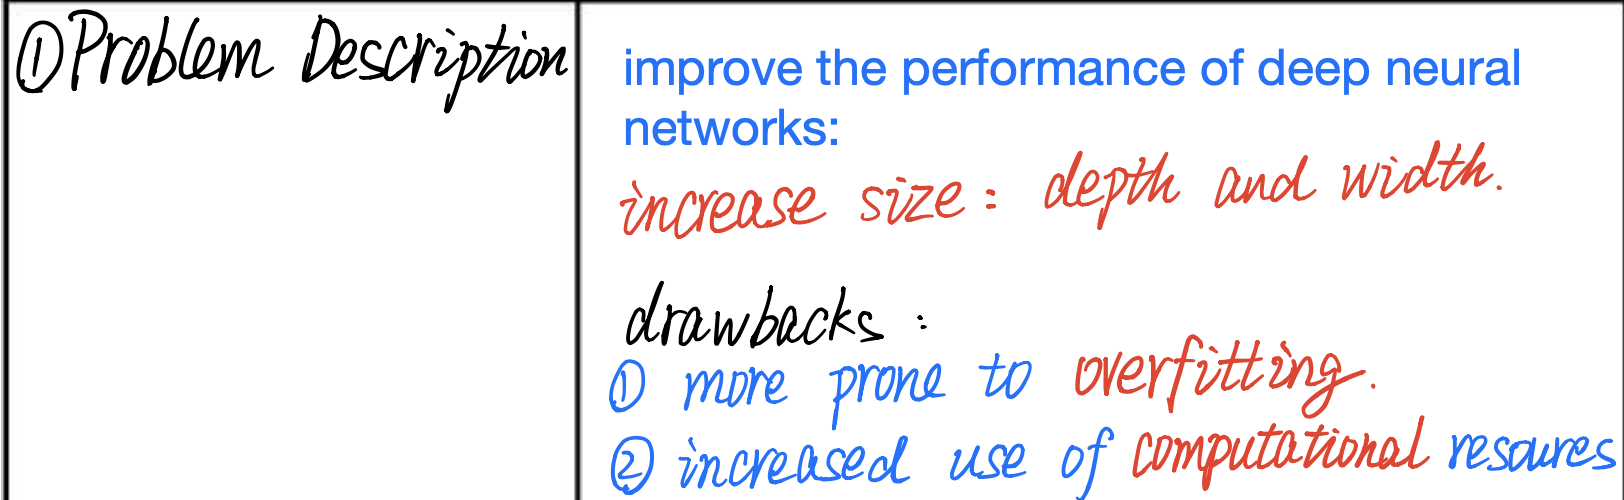 ①Problem Description
improve the performance of deep neural
networks:
increase size: depth and width.
drawbacks:
① more prone to overfitting.
② increased use of computational resoures